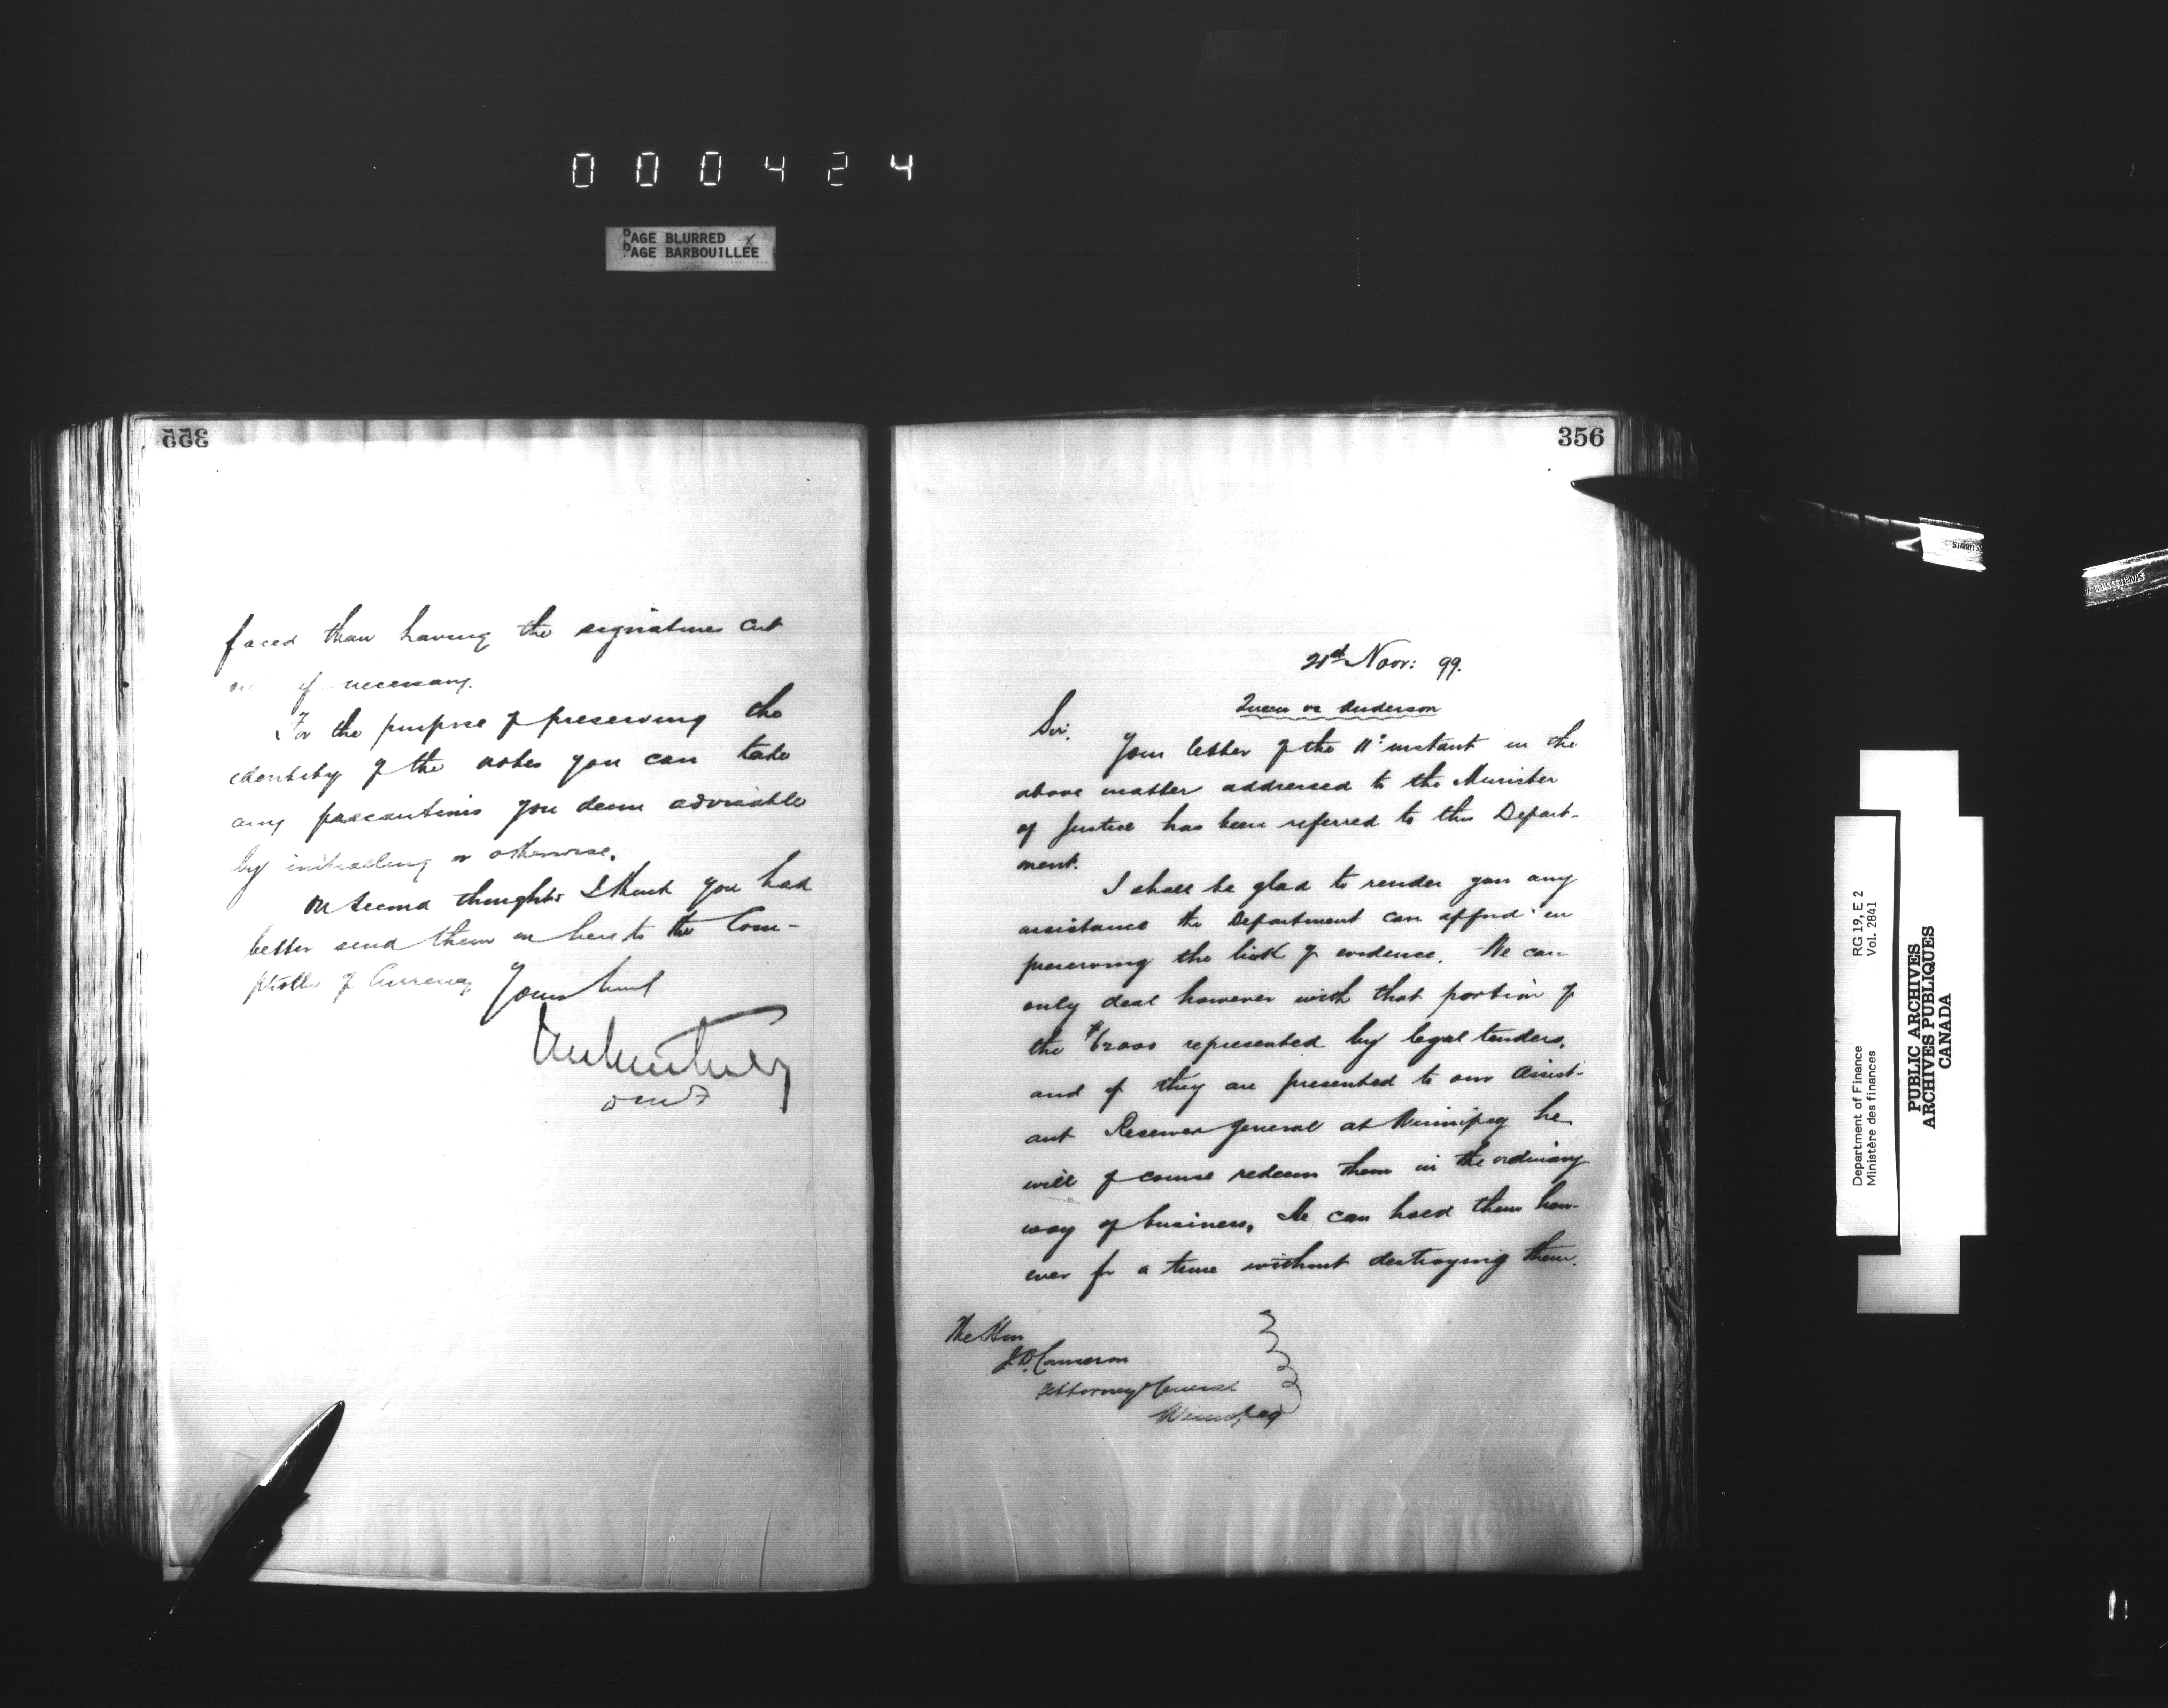 000424
PAGE BLURRED
PAGE BARBOUILLÉE
355
faced than having the signatures cut
out if necessary.
For the purpose of preserving the
identity of the notes you can take
any precautions you deem advisable
by initialing or otherwise.
On second thoughts I think you had
better send them on here to the Com-
ptroller of Currency
Yours truly
DMF
356
21st Novr: 99.
Queen vs Anderson
Sir,
Your letter of the 11th instant in the
above matter addressed to the Minister
of Justice has been referred to this Depart-
ment.
I shall be glad to render you any
assistance the Department can afford in
preserving the link of evidence. We can
only deal however with that portion of
the $62000 represented by legal tenders,
and if they are presented to our Assist-
ant Receiver General at Winnipeg he
will of course redeem them in the ordinary
way of business. He can hold them how-
ever for a time without destroying them.
The Hon
J.D. Cameron
Attorney General
Winnipeg
Department of Finance
Ministère des finances
RG 19, E 2
Vol. 2841
PUBLIC ARCHIVES
ARCHIVES PUBLIQUES
CANADA